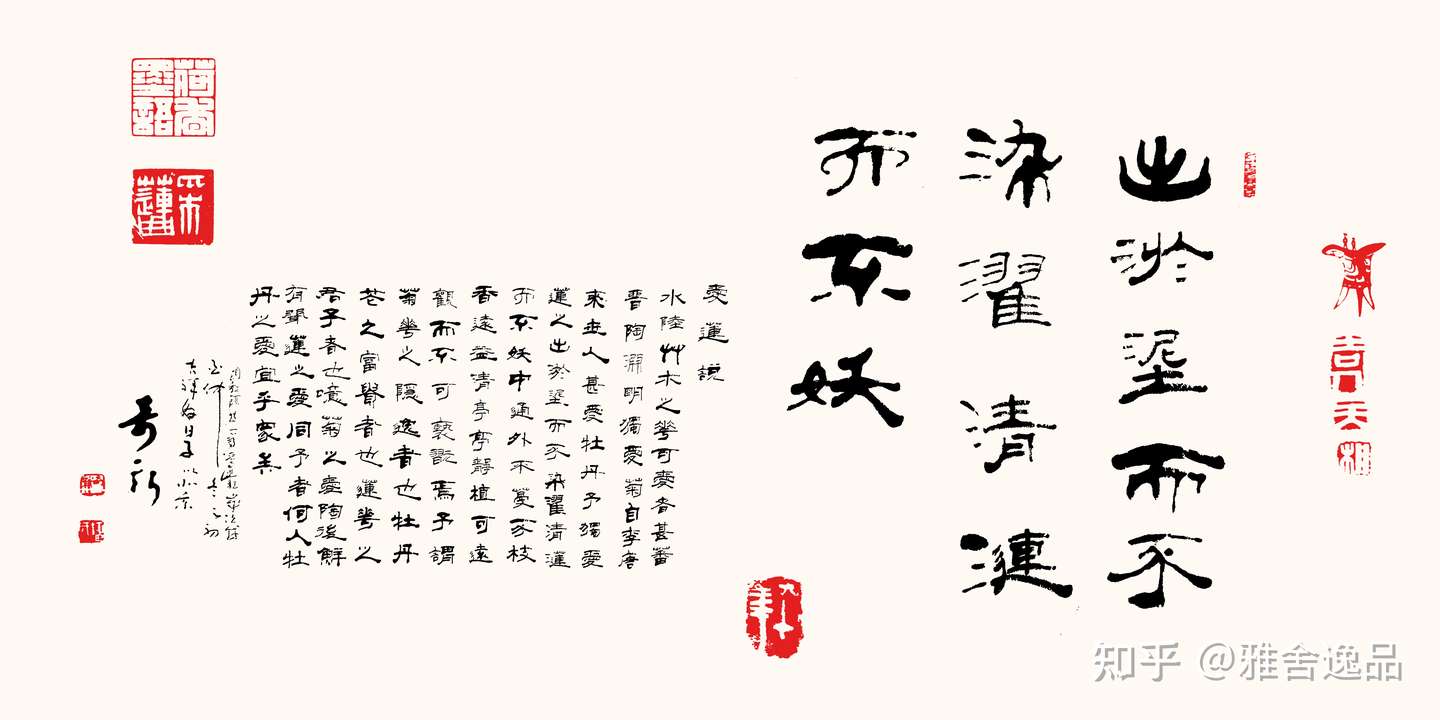 出淤埿而不
染濯清漣
而不妖
愛蓮說
水陸艸木之華可愛者甚蕃
晉陶淵明獨愛菊自李唐
來世人甚愛牡丹予獨愛
蓮之出淤埿而不染濯清漣
而不妖中通外不蔓不枝
香遠益清亭亭靜植可遠
觀而不可褻翫焉予謂
菊華之隱逸者也牡丹
花之富貴者也蓮華之
君子者也噫菊之愛陶後鮮
有聞蓮之愛同予者何人牡
丹之愛宜乎眾矣
采蓮
知乎 @雅舍逸品